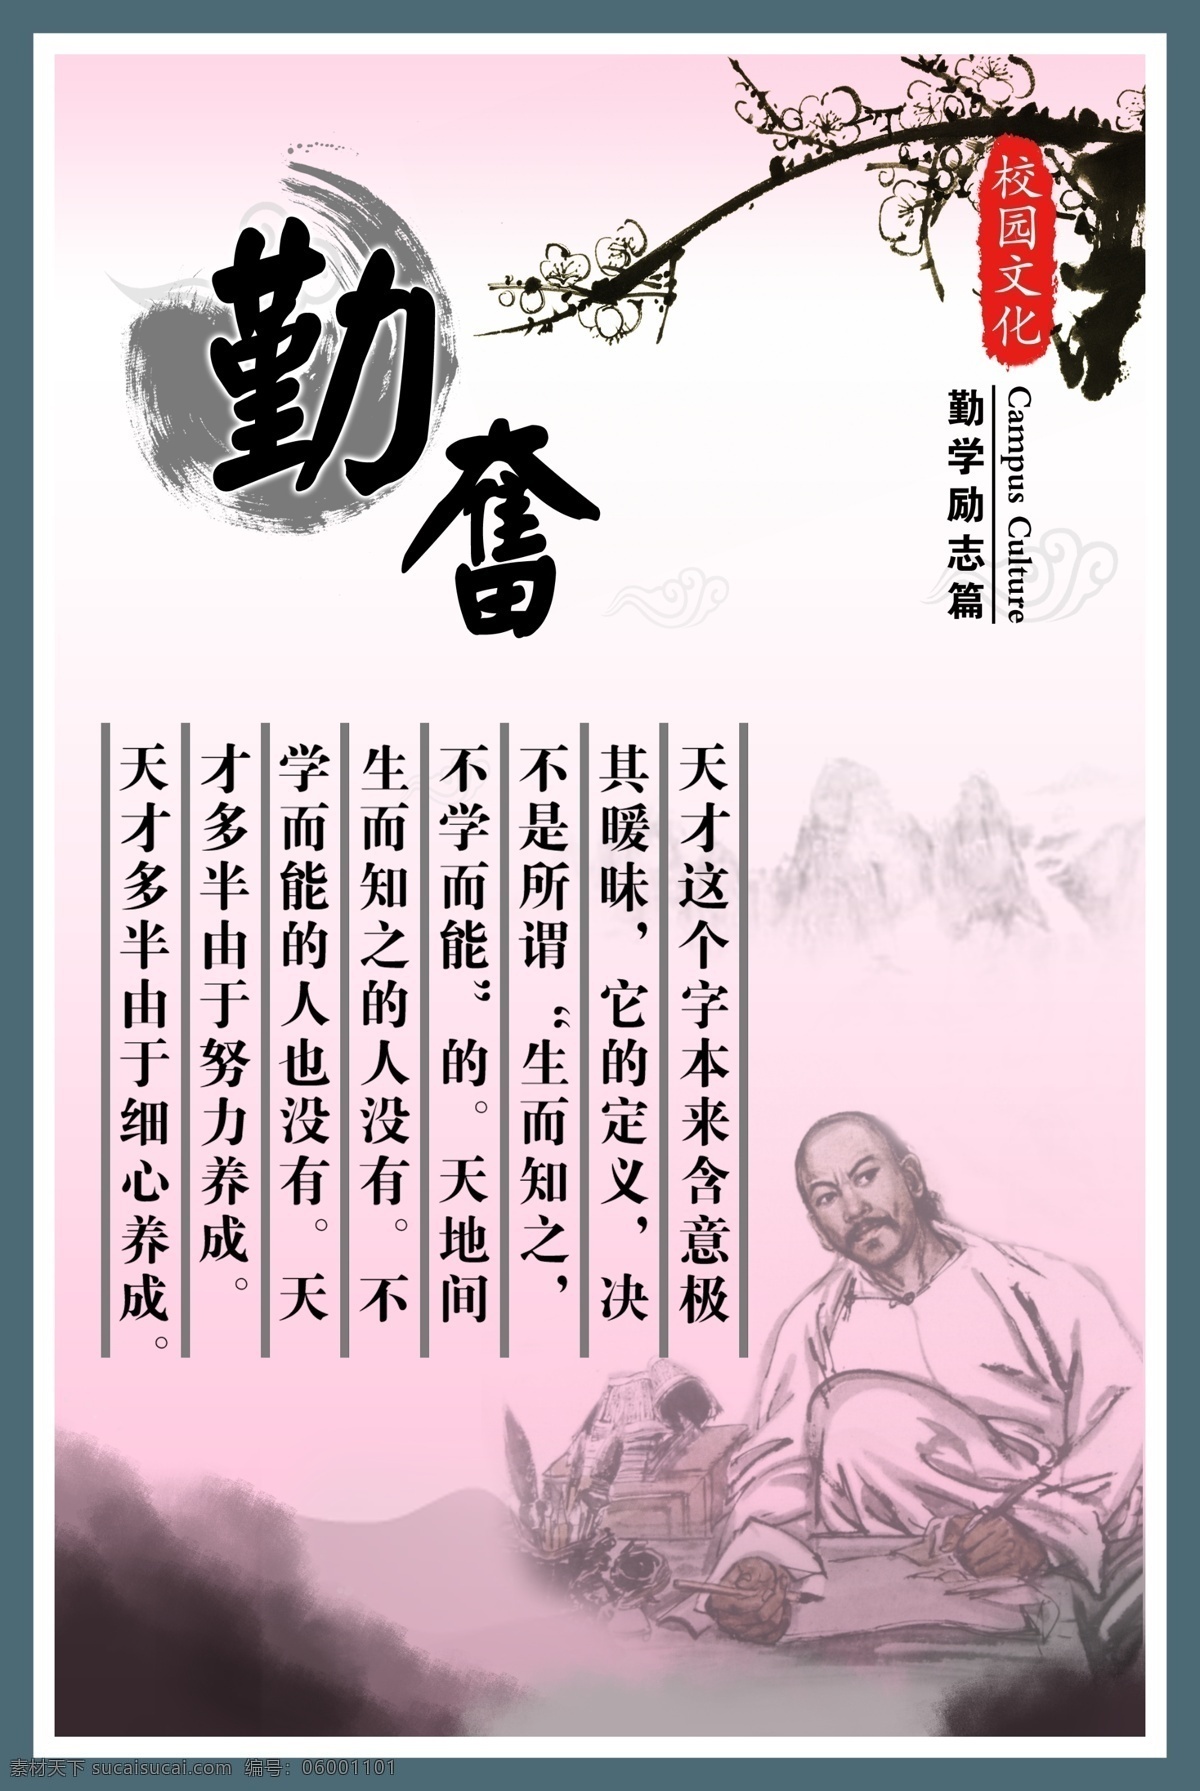 校园文化
Campus Culture
勤学励志篇
勤奋
天才这个字本来含意极
其暖昧，它的定义，决
不是所谓“生而知之，
不学而能”的。天地间
生而知之的人没有。不
学而能的人也没有。天
才多半由于努力养成。
天才多半由于细心养成。
素材天下 sucaisucai.com 编号：06001101